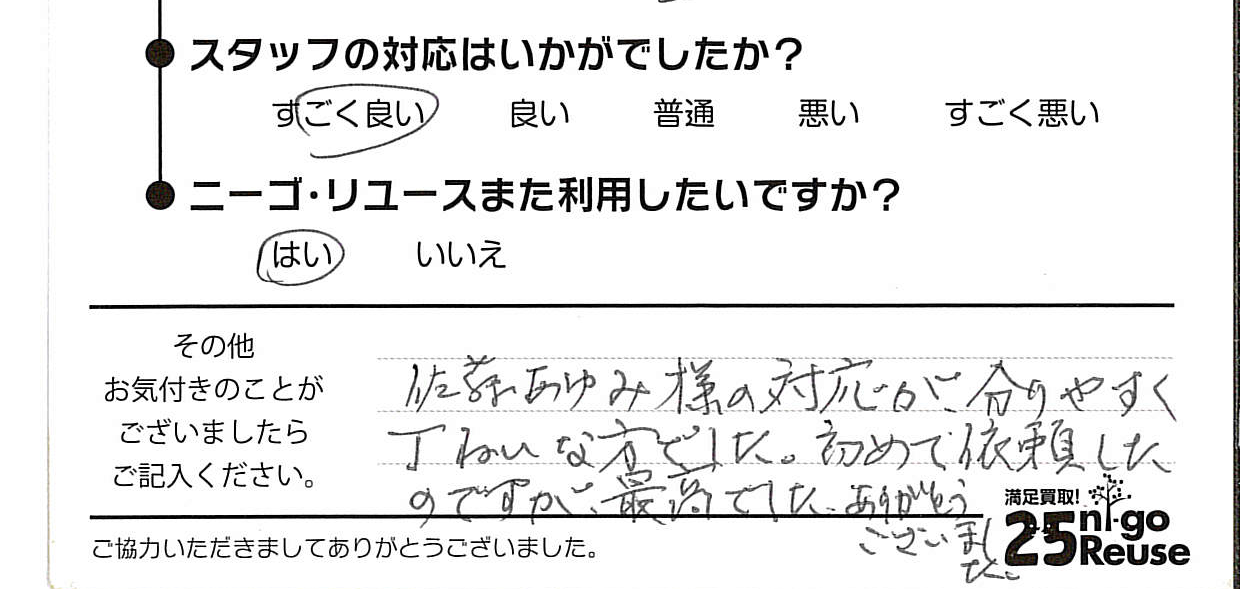 スタッフの対応はいかがでしたか？
すごく良い 良い 普通 悪い すごく悪い
ニーゴ・リユースまた利用したいですか？
はい いいえ
その他
お気付きのことが
ございましたら
ご記入ください。
佐藤あゆみ様の対応が、分りやすく
丁ねいな方でした。初めて依頼した
のですが、最高でした。ありがとう
ございまし
た。
満足買取！
25 ni-go
Reuse
ご協力いただきましてありがとうございました。